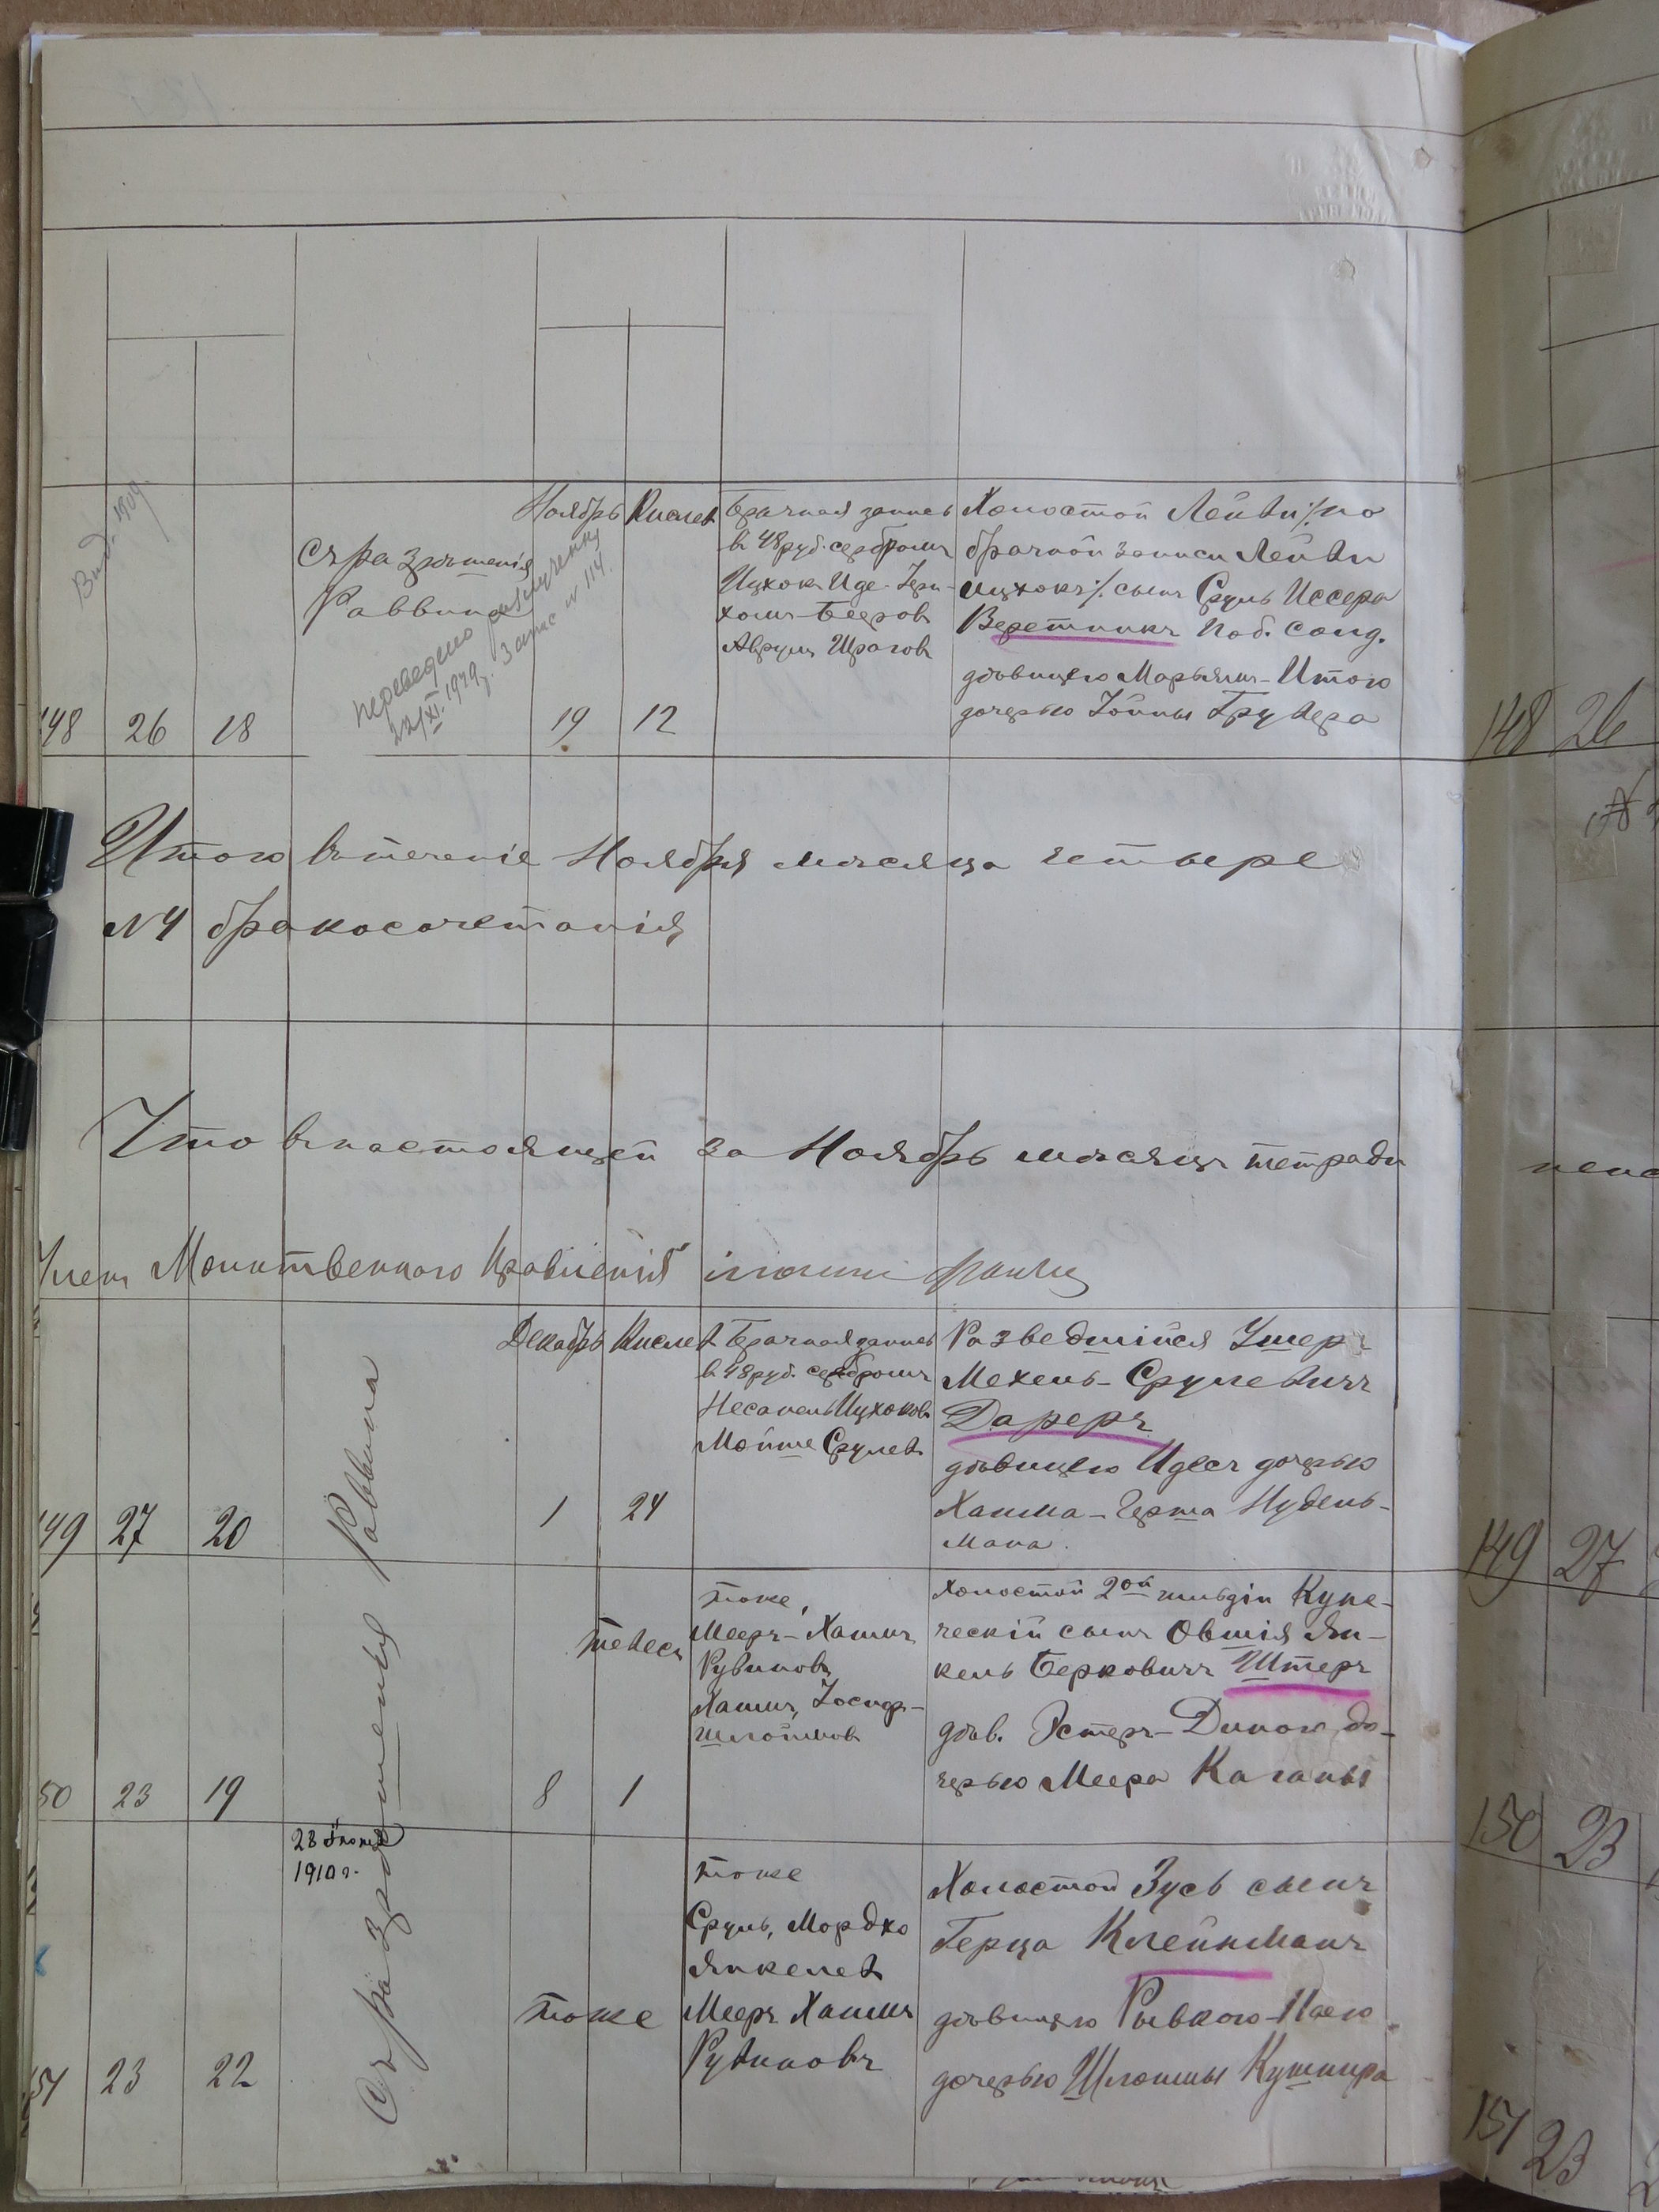 Вид. 1909.
Ноябрь Кислев
Съ разрѣшенія
Раввина
переведено
22/XI. 1929 г. Запис № 114.
Брачная запись
въ 48 руб. серебромъ
Ицхокъ Иде-Іерихомъ Беровъ
Аврумъ Шраговъ
Холостой Лейви ·/. по
брачной записи Лейви
Ицхокъ ·/. сынъ Сруль Иссера
Веретникъ Под. Солд.
дѣвицею Марьямъ-Итою
дочерью Іойны Грувера
148 26 18 19 12
148 26
Итого въ теченіе Ноября мѣсяца четыре
№ 4 бракосочетанія
Что въ настоящей за Ноябрь мѣсяцъ тетради
Членъ Молитвенного Правленія
Декабрь Кислев
Съ разрѣшенія Раввина
Брачная запись
въ 48 руб. серебромъ
Несанель Ицхоковъ
Мойше Срулев
Разведшійся Ушеръ
Мехель-Срулевичъ
Дареръ
дѣвицею Идесъ дочерью
Хаима-Герша Нудель-
мана.
149 27 20 1 24
149 27
тевесъ
тоже,
Мееръ-Хаимъ
Рувиновъ
Хаимъ, Іосифъ-
Шлоймов
Холостой 2ой гильдіи Купе-
ческій сынъ Овшія Ян-
кель Берковичъ Штеръ
дѣв. Эстеръ-Диною до-
черью Меера Каганы
50 23 19 8 1
150 23
28 Іюня
1910 г.
тоже
тоже
Сруль, Мордко
Янкелев
Мееръ Хаимъ
Рувиновъ
Холостой Зусь сынъ
Герца Клейнманъ
дѣвицею Рывкою-Идею
дочерью Шлоймы Кушнира
51 23 22
151 23